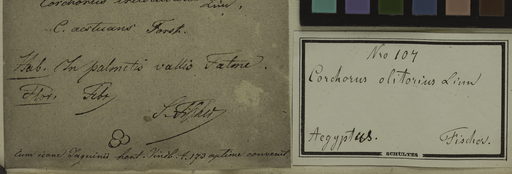 Corchorus Linn,
C. aestuans Forsk.
Hab. In palmetis vallis Fatme.
Flor. Febr
Cum icone Jaquinii hort. Vindb. t. 173 optime convenit
No 107
Corchorus olitorius Linn
Aegyptus. Fischer.
SCHULTES